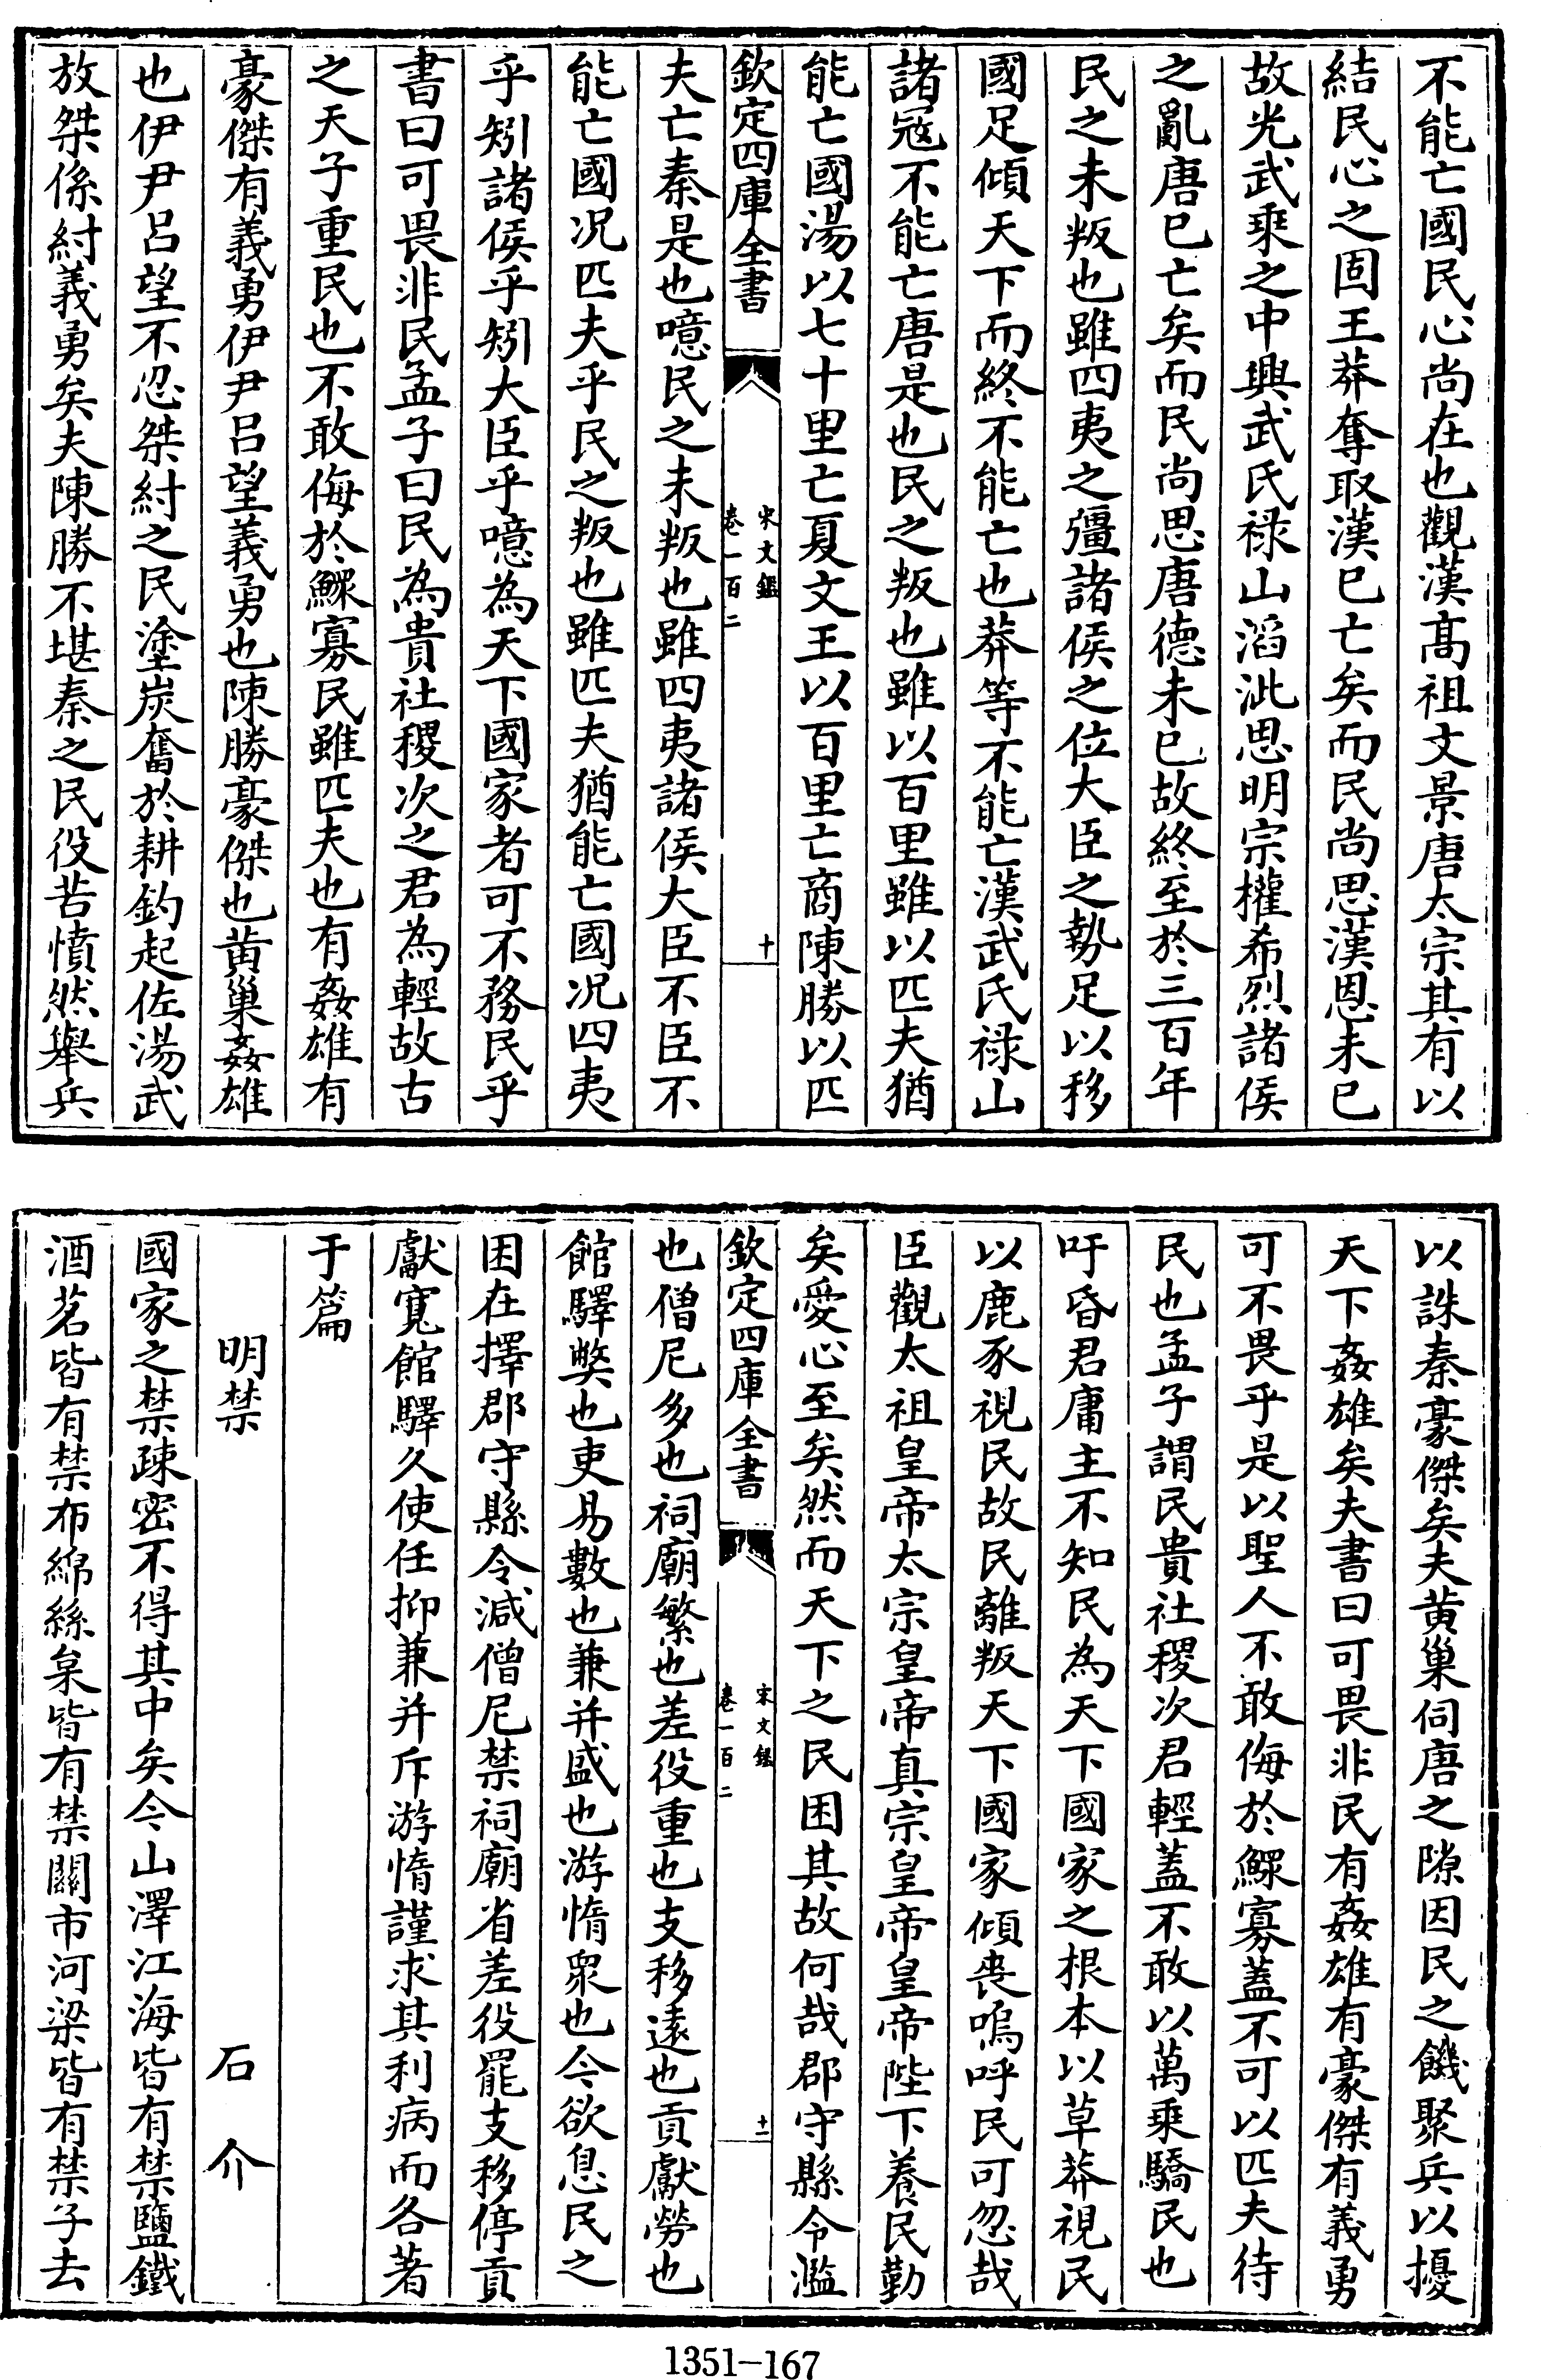 不能亡國民心尚在也觀漢髙祖文景唐太宗其有以
結民心之固王莽奪取漢已亡矣而民尚思漢恩未已
故光武乘之中興武氏禄山滔泚思明宗權希烈諸侯
之亂唐已亡矣而民尚思唐德未已故終至於三百年
民之未叛也雖四夷之彊諸侯之位大臣之勢足以移
國足傾天下而終不能亡也莽等不能亡漢武氏禄山
諸冦不能亡唐是也民之叛也雖以百里雖以匹夫猶
能亡國湯以七十里亡夏文王以百里亡商陳勝以匹
欽定四庫全書
宋文鑑
卷一百二
十
夫亡秦是也噫民之未叛也雖四夷諸侯大臣不臣不
能亡國况匹夫乎民之叛也雖匹夫猶能亡國况四夷
乎矧諸侯乎矧大臣乎噫為天下國家者可不務民乎
書曰可畏非民孟子曰民為貴社稷次之君為輕故古
之天子重民也不敢侮於鰥寡民雖匹夫也有姦雄有
豪傑有義勇伊尹吕望義勇也陳勝豪傑也黄巢姦雄
也伊尹吕望不忍桀紂之民塗炭奮於耕釣起佐湯武
放桀係紂義勇矣夫陳勝不堪秦之民役苦憤然舉兵
以誅秦豪傑矣夫黄巢伺唐之隙因民之饑聚兵以擾
天下姦雄矣夫書曰可畏非民有姦雄有豪傑有義勇
可不畏乎是以聖人不敢侮於鰥寡蓋不可以匹夫待
民也孟子謂民貴社稷次君輕蓋不敢以萬乘驕民也
吁昏君庸主不知民為天下國家之根本以草莽視民
以鹿豕視民故民離叛天下國家傾喪嗚呼民可忽哉
臣觀太祖皇帝太宗皇帝真宗皇帝皇帝陛下養民勤
矣愛心至矣然而天下之民困其故何哉郡守縣令濫
欽定四庫全書
宋文鑑
卷一百二
十一
也僧尼多也祠廟繁也差役重也支移逺也貢獻勞也
館驛弊也吏易數也兼并盛也游惰衆也今欲息民之
困在擇郡守縣令減僧尼禁祠廟省差役罷支移停貢
獻寛館驛久使任抑兼并斥游惰謹求其利病而各著
于篇
明禁
石介
國家之禁疎密不得其中矣今山澤江海皆有禁鹽鐵
酒茗皆有禁布綿絲枲皆有禁關市河梁皆有禁子去
1351-167